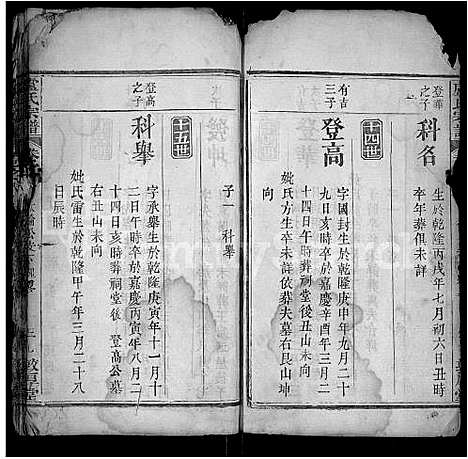 登華
之子
科名
生於乾隆丙戌年七月初六日丑時
卒年葬俱未詳
有吉
三子
登高
字國封生於乾隆庚申年九月二十
九日亥時卒於嘉慶辛酉年三月二
十四日午時葬祠堂後丑山未向
妣氏方生卒未詳依葬夫墓右艮山坤
向
子一 科舉
十五世
登高
之子
科舉
字承舉生於乾隆庚寅年十一月十
二日午時卒於嘉慶丙寅年八月二
十四日亥時葬祠堂後 登高公墓
右丑山未向
妣氏雷生於乾隆甲午年三月二十八
日辰時
氏宗譜